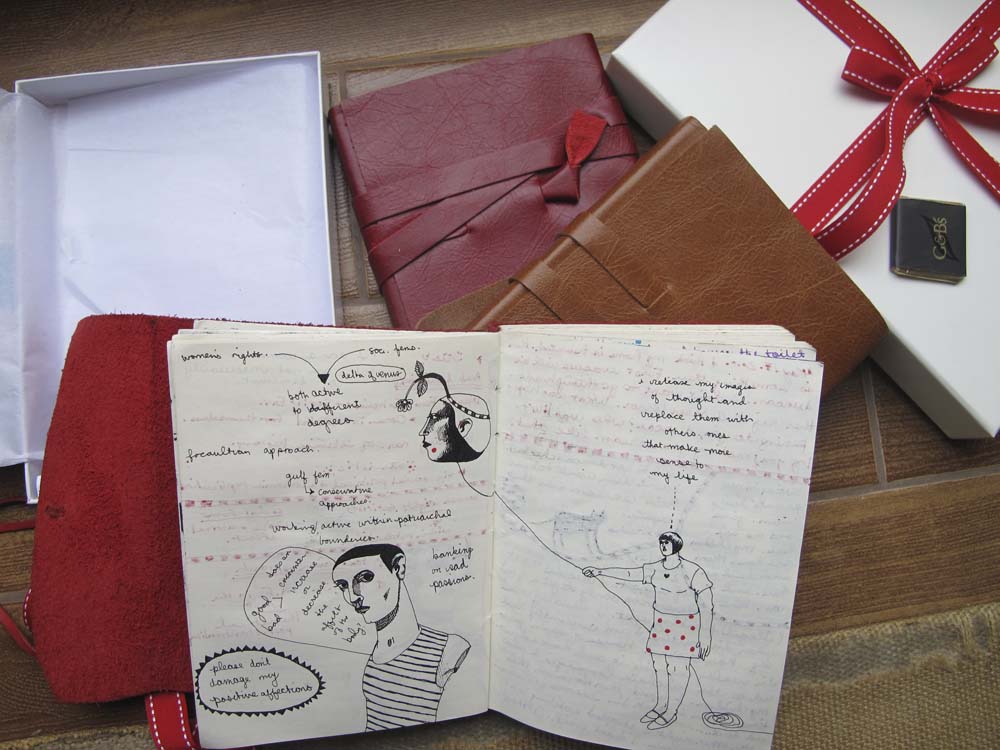 women's rights.
soc. fems.
delta of venus
both active
to different
degrees
focaultian approach.
gulf fem
↳ conservative
approaches.
working/active within patriarchal
bounderies.
does an
good encounter
bad increase
or
decrease
the
effect
of the
body?
banking
on sad
passions.
please dont
damage my
positive affections
the toilet
i release my images
of thought and
replace them with
others ones
that make more
sense to
my life
G&B's